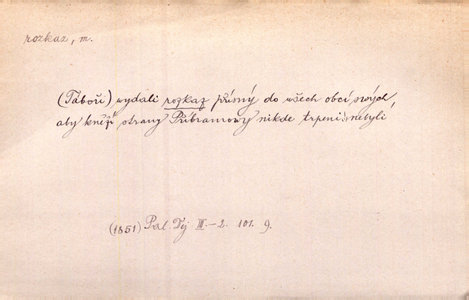 rozkaz, m.
(Táboři) vydali rozkaz přísný do všech obcí svých,
aby kněží strany Příbramovy nikde trpeni nebyli
(1851) Pal. Děj III.-2. 101. 9.